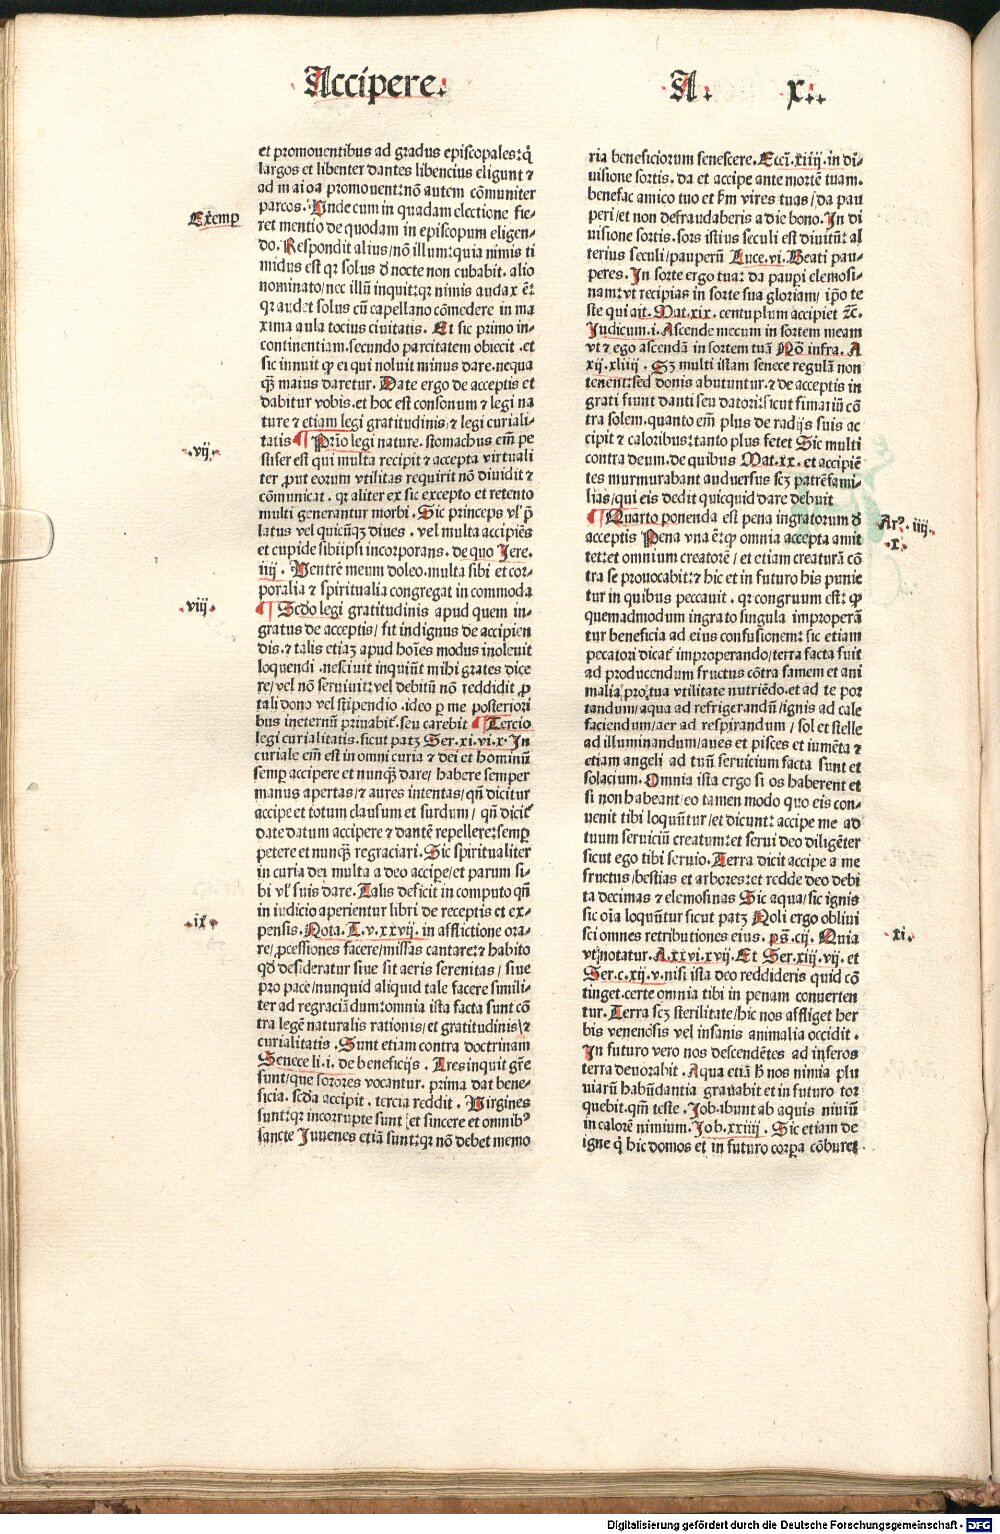 Accipere. A. x.
et promouentibus ad gradus episcopales: q̇
largos et libenter dantes libencius eligunt ⁊
ad maiora promouent: nō autem cōmuniter
parcos. Vnde cum in quadam electione fie-
Exemp
ret mentio de quodam in episcopum eligen-
do. Respondit alius/nō illum: quia nimis ti
midus est qꝛ solus ð nocte non cubabit. alio
nominato/nec illū inquit: qꝛ nimis audax ē:
qꝛ audet solus cū capellano cōmedere in ma
xima aula tocius ciuitatis. Et sic primo in-
continentiam. secundo parcitatem obiecit. et
sic innuit ꝙ ei qui noluit minus dare. nequa
qꝫ maius daretur. Date ergo de acceptis et
dabitur vobis. et hoc est consonum ⁊ legi na
ture ⁊ etiam legi gratitudinis/⁊ legi curiali-
tatis ¶ Prīo legi nature. stomachus em̄ pe
.vij.
stifer est qui multa recipit ⁊ accepta virtuali
ter ꝓut eorum vtilitas requirit nō diuidit ⁊
cōmunicat. qꝛ aliter ex sic excepto et retento
multi generantur morbi. Sic princeps vl' p̄
latus vel quicūqꝫ diues. vel multa accipiēs
et cupide sibiipsi incorporans. de quo Jere.
iiij. Ventrē meum doleo. multa sibi et cor-
poralia ⁊ spiritualia congregat in commoda
.viij.
¶ Scdo legi gratitudinis apud quem in-
gratus de acceptis/ fit indignus de accipien
dis. ⁊ talis etiaꝫ apud hoīes modus inoleuit
loquendi. nesciuit inquiūt mihi grates dice
re/vel nō seruiuit: vel debitū nō reddidit ꝓ
tali dono vel stipendio. ideo ꝑ me posteriori
bus ineternū priuabit'. seu carebit ¶ Tercio
legi curialitatis. sicut patꝫ Ser. xi. vi. x. In
curiale em̄ est in omni curia ⁊ dei et hominū
semꝑ accipere et nunqꝫ dare/ habere semper
manus apertas/⁊ aures intentas/ qn̄ dicitur
accipe et totum clausum et surdum/ qn̄ dicit'
date datum accipere ⁊ dantē repellere: semꝑ
petere et nunqꝫ regraciari. Sic spiritualiter
in curia dei multa a deo accipe/et parum si-
bi vl' suis dare. Talis deficit in computo qn̄
in iudicio aperientur libri de receptis et ex-
.ix.
pensis. Nota. T. v. xxvij. in afflictione ora-
re/ ꝓcessiones facere/missas cantare: ⁊ habito
qd̄ desideratur siue sit aeris serenitas/ siue
pro pace/nunquid aliquid tale facere simili-
ter ad regraciādum: omnia ista facta sunt cō
tra legē naturalis rationis/et gratitudinis/⁊
curialitatis. Sunt etiam contra doctrinam
Senece li. i. de beneficijs. Tres inquit gr̄e
sunt/que sorores vocantur. prima dat bene-
ficia. scda accipit. tercia reddit. Virgines
sunt: qꝛ incorrupte sunt et sincere et omnibꝰ
sancte Juuenes etiā sunt: qꝛ nō debet memo
ria beneficiorum senescere. Ecci. xiiij. in di-
uisione sortis. da et accipe ante mortē tuam.
benefac amico tuo et ẜm vires tuas/da pau
peri/et non defrauderis a die bono. In di
uisione sortis. sors istius seculi est diuitū: al
terius seculi/pauperū Luce. vi. Beati pau-
peres. In sorte ergo tua: da pauꝑi elemosi-
nam: vt recipias in sorte sua gloriam/ ip̄o te
ste qui ait. Mat. xix. centuplum accipiet ⁊c̄.
Judicum. i. Ascende mecum in sortem meam
vt ⁊ ego ascendā in sortem tuā Nō infra. A
xij. xliiij. Sꝫ multi istam senece regulā non
tenent: sed donis abutuntur. ⁊ de acceptis in
grati fiunt danti seu datori: sicut fimariū cō
tra solem. quanto em̄ plus de radijs suis ac
cipit ⁊ caloribus: tanto plus fetet Sic multi
contra deum. de quibus Mat. xx. et accipiē
tes murmurabant aduersus scꝫ patrēfami-
lias/qui eis dedit quicquid dare debuit
¶ Quarto ponenda est pena ingratorum ð
Arͦ. iiij.
acceptis Pena vna ē: qꝛ omnia accepta amit
.x.
tet: et omnium creatorē/ et etiam creaturā cō
tra se prouocabit: ⁊ hic et in futuro his punie
tur in quibus peccauit. qꝛ congruum est: ꝙ
quemadmodum ingrato singula improperā
tur beneficia ad eius confusionem: sic etiam
peccatori dicat' improperando/terra facta fuit
ad producendum fructus cōtra famem et ani
malia pro tua vtilitate nutriēdo. et ad te por
tandum/aqua ad refrigerandū/ignis ad cale
faciendum/aer ad respirandum/ sol et stelle
ad illuminandum/aues et pisces et iumēta ⁊
etiam angeli ad tuū seruicium facta sunt et
solacium. Omnia ista ergo si os haberent et
si non habeant/eo tamen modo quo eis con-
uenit tibi loquūtur/et dicunt: accipe me ad
tuum seruiciū creatum: et serui deo diligēter
sicut ego tibi seruio. Terra dicit accipe a me
fructus/bestias et arbores: et redde deo debi
ta decimas ⁊ elemosinas Sic aqua/sic ignis
sic oīa loquūtur sicut patꝫ Noli ergo obliui
sci omnes retributiones eius. ps̄. cij. Quia
.xi.
vt notatur. A. xxvi. xvij. Et Ser. xiij. vij. et
Ser. c. xij. v. nisi ista deo reddideris quid cō
tinget. certe omnia tibi in penam conuerten
tur. Terra scꝫ sterilitate/hic nos affliget her
bis venenosis vel insanis animalia occidit.
In futuro vero nos descendētes ad inferos
terra deuorabit. Aqua etiā ħ nos nimia plu
uiarū habūdantia grauabit et in futuro tor
quebit. qm̄ teste. Job. ibunt ab aquis niuiū
in calorē nimium. Job. xxiiij. Sic etiam de
igne q̇ hic domos et in futuro corꝑa cōburet
Digitalisierung gefördert durch die Deutsche Forschungsgemeinschaft - DFG